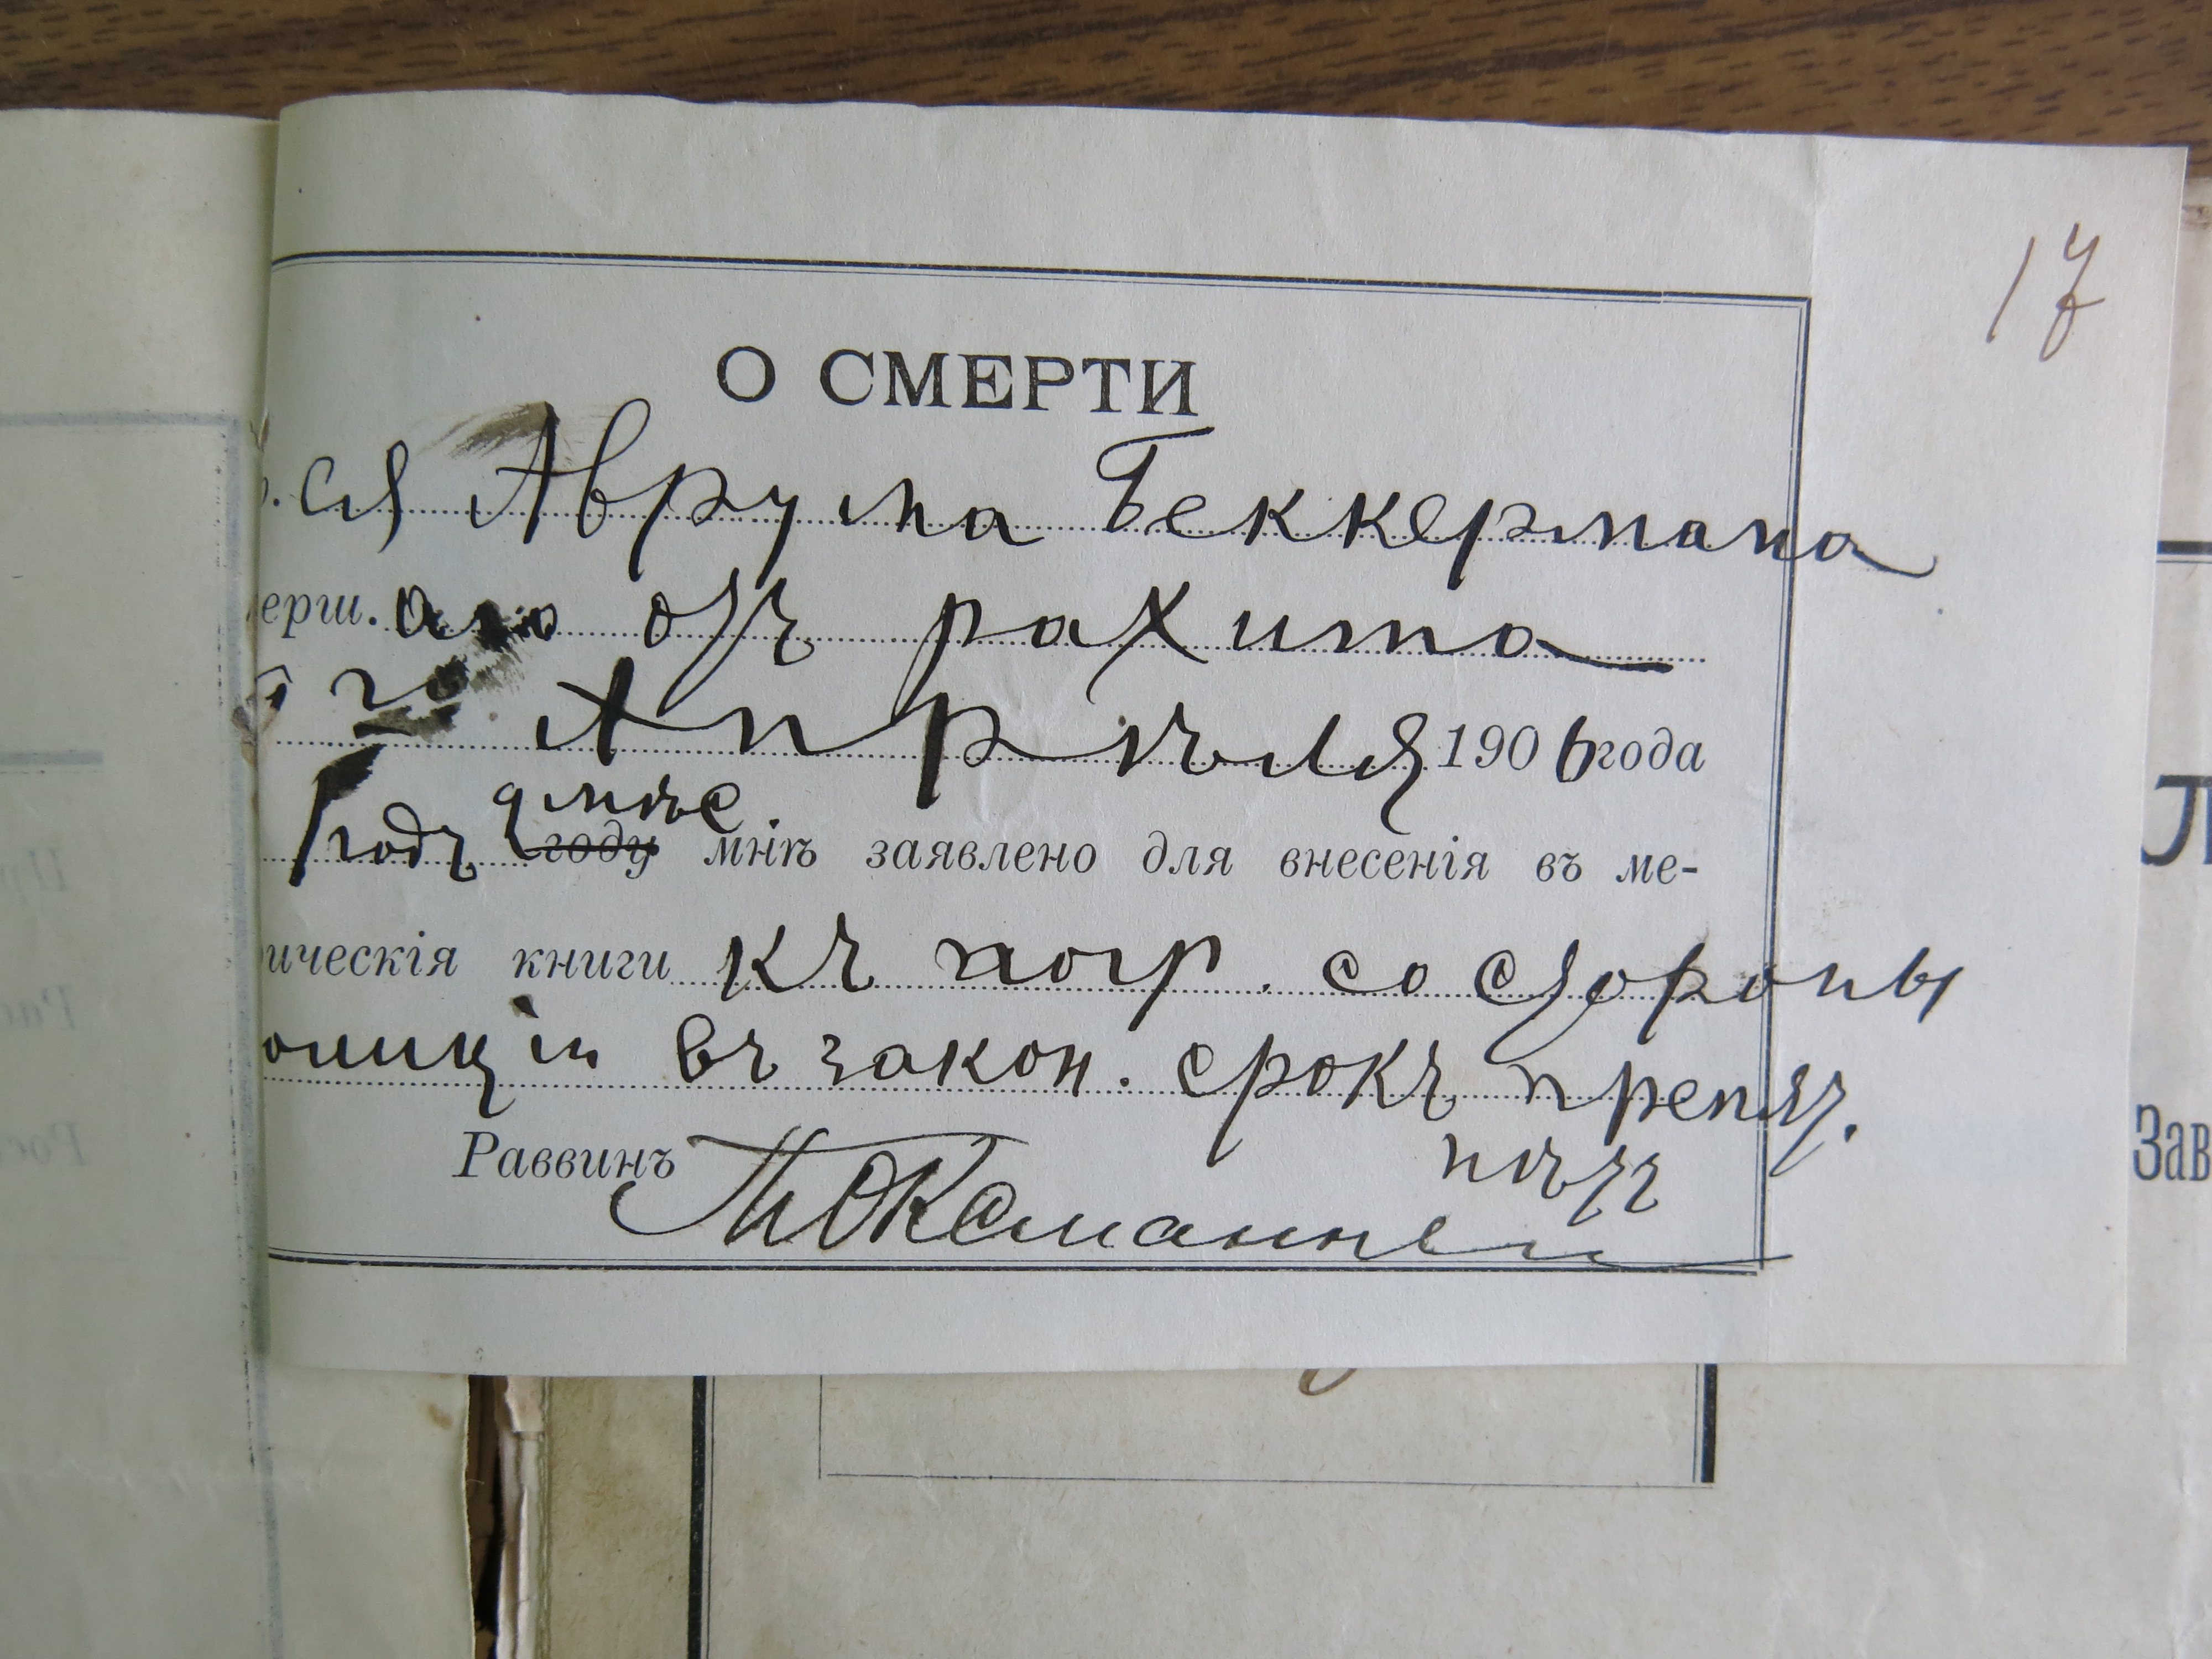 17
О СМЕРТИ
ся Аврума Беккермана
ерш. аго отъ рахита
го Апрѣля 1906 года
1 годъ 9 мѣс
году мнѣ заявлено для внесенія въ ме-
ическія книги къ погр. со стороны
олиціи въ закон. срокъ препят.
нѣтъ
Раввинъ
Л
Зав